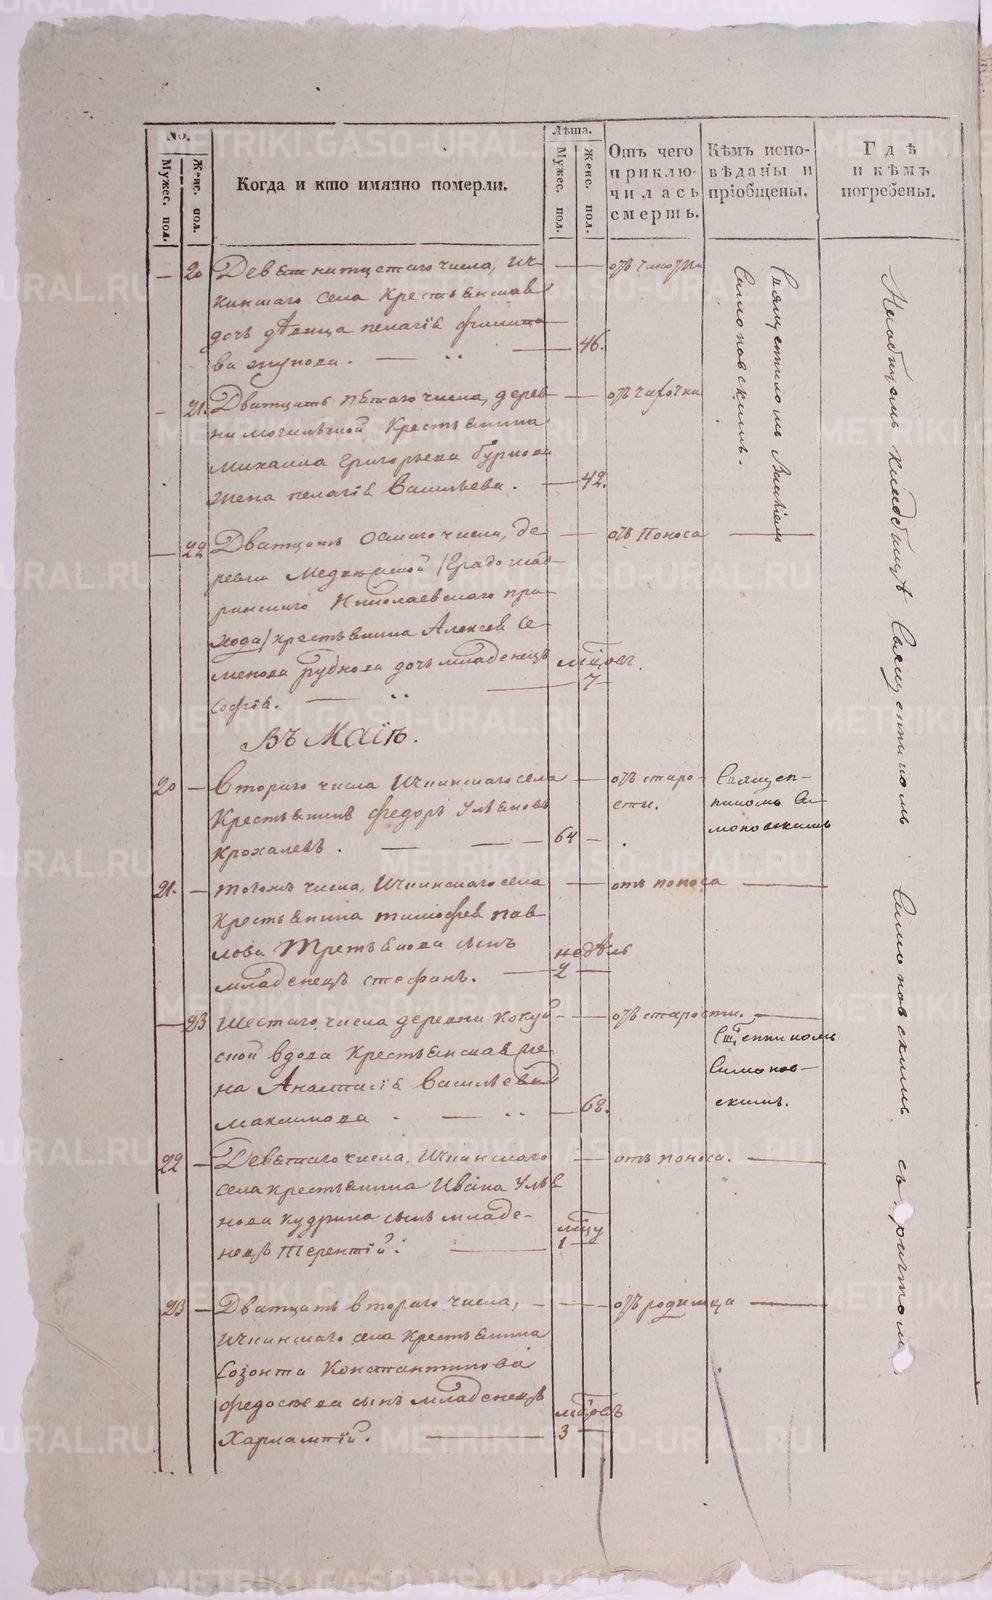 No.
Мужес. пол.
Женс. пол.
Когда и кто имянно померли.
Лѣта.
Мужес. пол.
Женс. пол.
Отъ чего приключилась смерть.
Кѣмъ исповѣданы и пріобщены.
Гдѣ и кѣмъ погребены.
20 Девятнатцетаго числа, Ич-
кинскаго села крестьянская
дочь дѣвица пелагія филипо-
ва жукова. 46.
отъ чахотки
Священникомъ
Симоновскимъ.
21. Дватцать пятаго числа, дерев-
ни могилѣвской Крестьянина
Михаила григорьева буркова
жена пелагія Васильева. 42.
отъ чахотки
22 Дватцать осмаго числа, де-
ревни
Николаевскаго при-
хода/ крестьянина Алексея Се-
менова Руднова дочь младенецъ
софія. мцовъ 7
отъ Поноса
Въ Маіѣ.
20 Втораго числа Ичкинскаго села
Крестьянинъ федоръ Ульяновъ
Крохалевъ. 64
отъ старо-
сти.
Священ-
никомъ Си-
моновскимъ
21. тогожъ числа, Ичкинскаго села
крестьянина тимофея пав-
лова Третьякова сынъ
младенецъ стефанъ. недѣль 2
отъ поноса
23 Шестаго числа деревни Кокуй-
ской вдова Крестьянская же-
на Анастасія Васильева
максимова 68.
отъ старости.
Сщенникомъ
Симонов-
скимъ.
22 Девятаго числа, Ичкинскаго
села крестьянина Ивана Улья-
нова кудрина сынъ младе-
нецъ терентій. мцу 1
отъ поноса.
23 Дватцать втораго числа,
Ичкинскаго села Крестьянина
Созонта Константинова
федосеева сынъ младенецъ
Харлампій. мцовъ 3
отъ родимца
На общемъ кладбищѣ Священникомъ Симоновскимъ съ причтомъ
METRIKI.GASO-URAL.RU